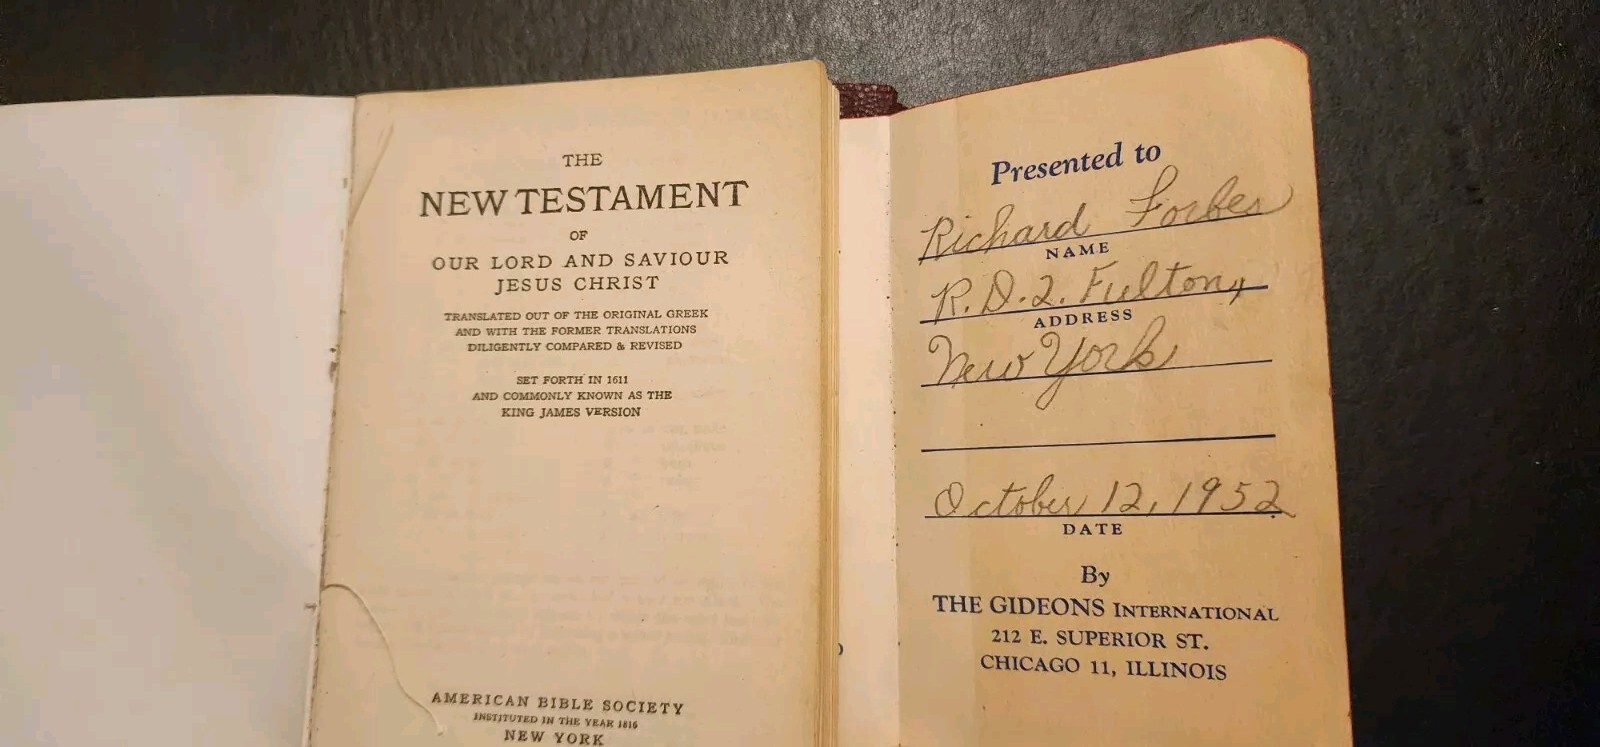 THE
NEW TESTAMENT
OF
OUR LORD AND SAVIOUR
JESUS CHRIST
TRANSLATED OUT OF THE ORIGINAL GREEK
AND WITH THE FORMER TRANSLATIONS
DILIGENTLY COMPARED & REVISED
SET FORTH IN 1611
AND COMMONLY KNOWN AS THE
KING JAMES VERSION
AMERICAN BIBLE SOCIETY
INSTITUTED IN THE YEAR 1816
NEW YORK
Presented to
Richard Forbes
NAME
R.D.2. Fulton,
ADDRESS
New York
October 12, 1952
DATE
By
THE GIDEONS INTERNATIONAL
212 E. SUPERIOR ST.
CHICAGO 11, ILLINOIS